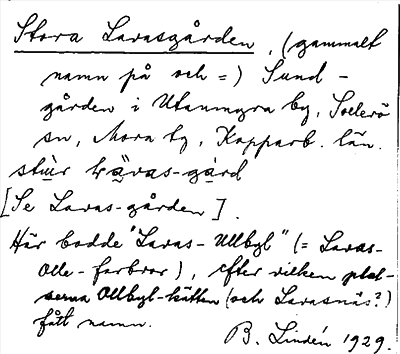 Stora Larasgården, (gammalt
namn på och =) Sund-
gården i Utanmyra by, Sollerö
sn, Mora tg, Kopparb. län.
stùr làras-gard
[Se Laras-gården].
Här bodde "Laras-Ullbyl" (= Laras-
Olle-farbror), efter vilken plat-
serna Ollbyl-kätten (och Larasnäs?)
fått namn.
B. Lindén 1929.